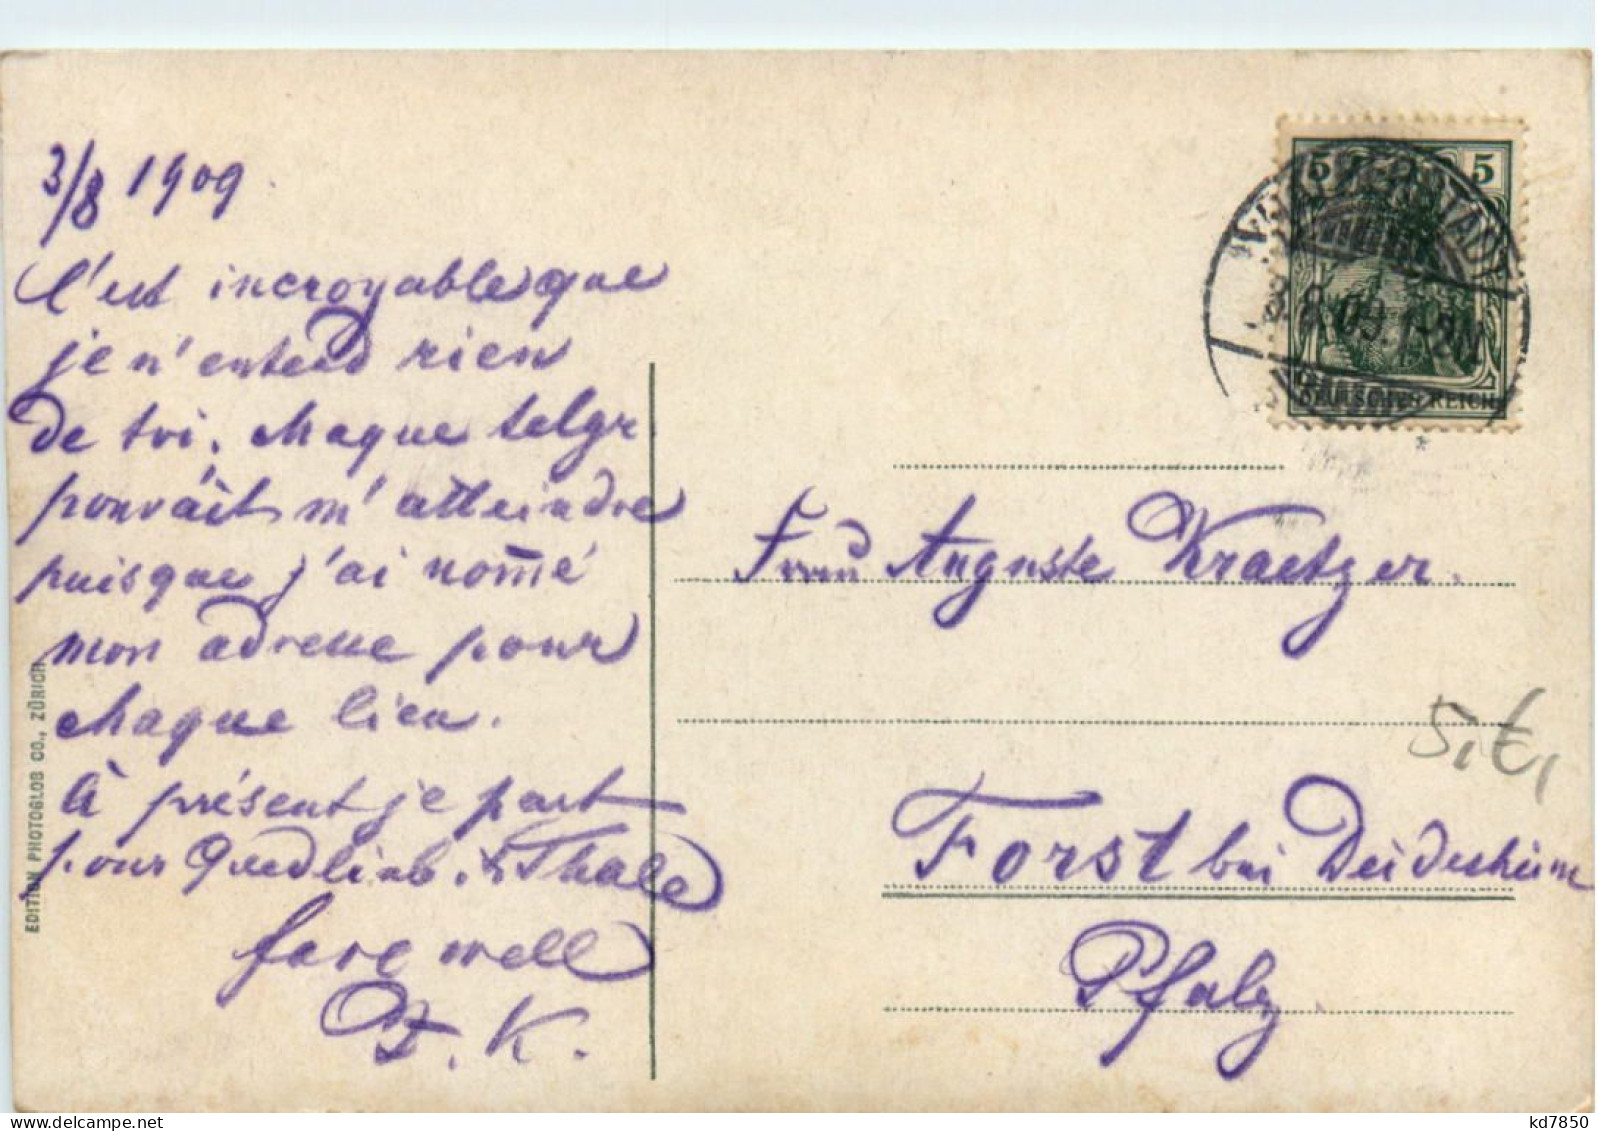 3/8 1909.
C'est incroyable que
je n'entend rien
de toi. Chaque telgr
pouvait m'atteindre
puisque j'ai nom̄é
mon adresse pour
chaque lieu.
À présent je part
pour Quedlinb. & Thale
fare well
K.
EDITION PHOTOGLOB CO., ZÜRICH
5 5
HALBERSTADT
3.8.09.1-2N
DEUTSCHES REICH
Frau Auguste Kraetzer.
Forst bei Deidesheim
Pfalz
delcampe.net
kd7850